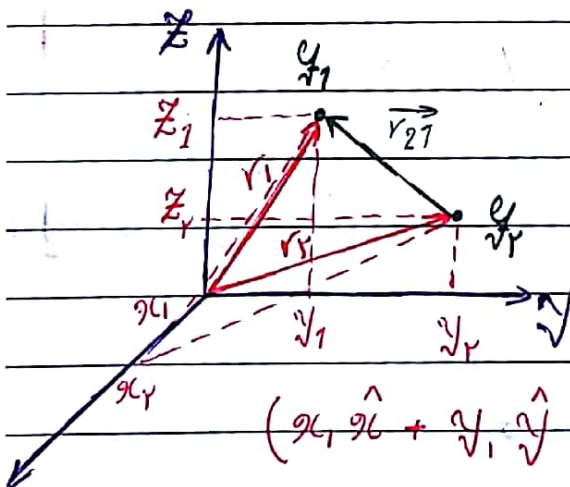 z
q1
z1
r21
r1
z۲
q۲
r۲
x1
y1
y۲
y
x۲
(x1 x̂ + y1 ŷ